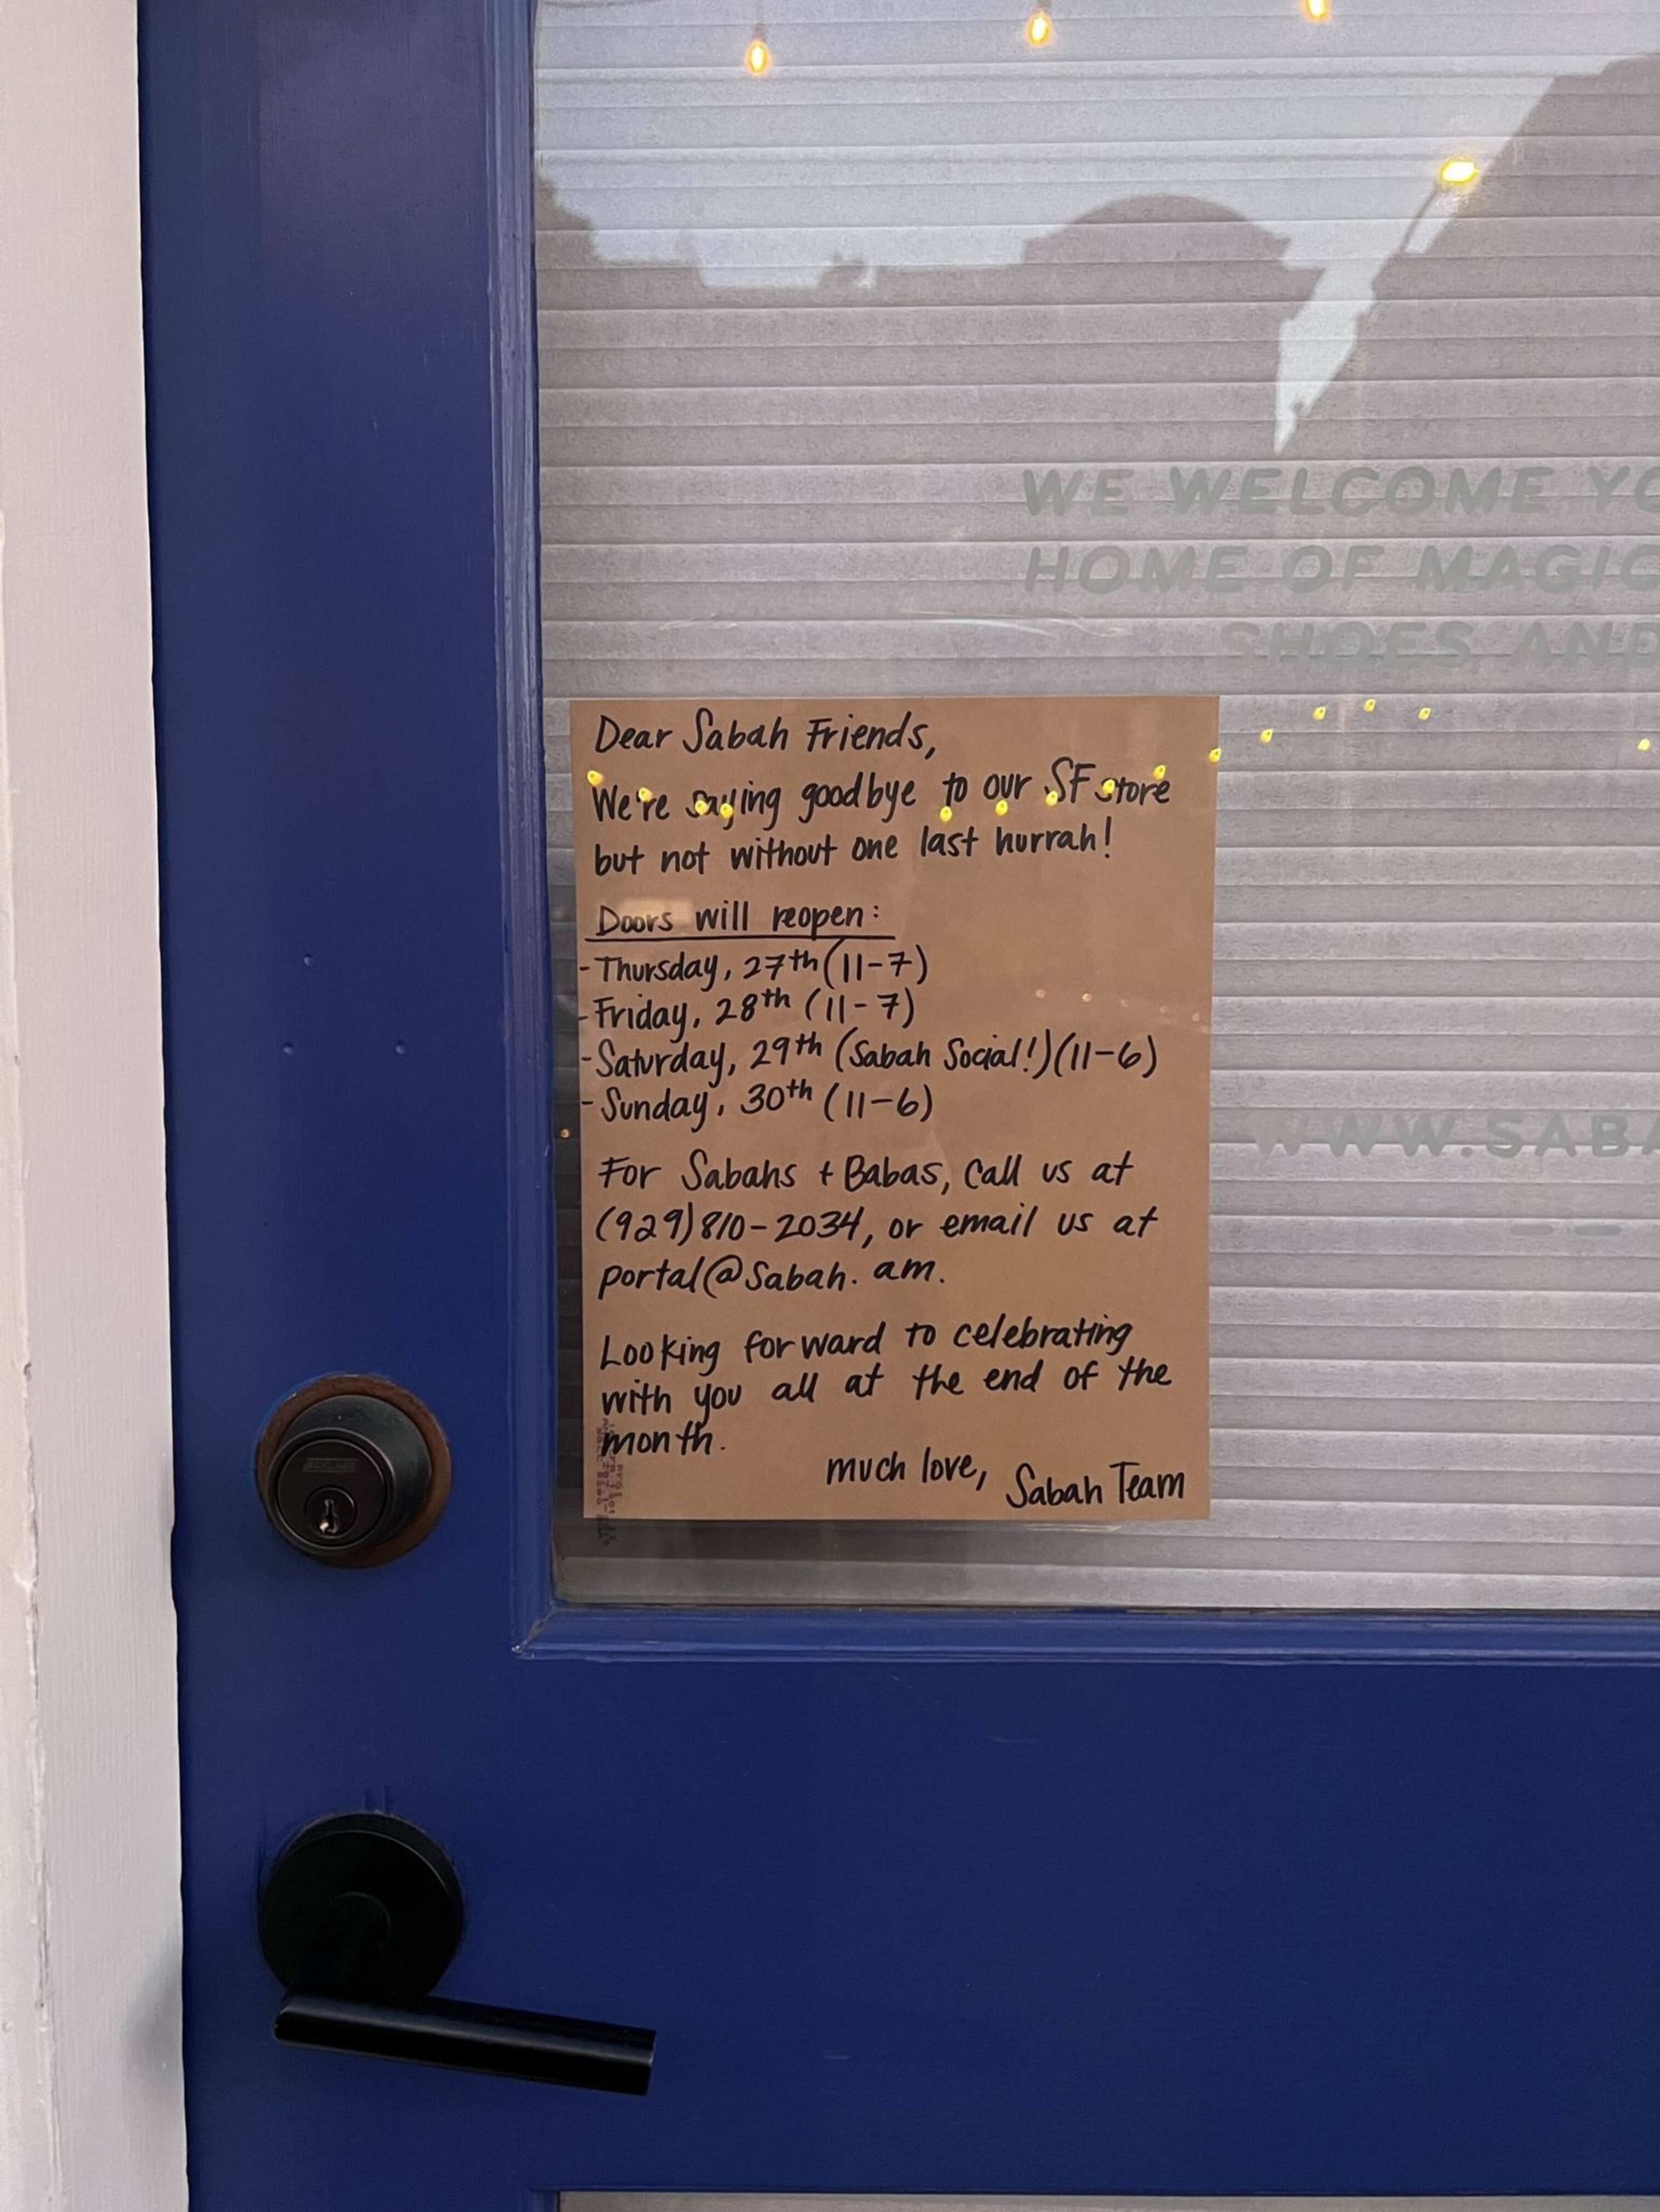 WE WELCOME YO
HOME OF MAGIC
SHOES AND
Dear Sabah Friends,
We're saying goodbye to our SF store
but not without one last hurrah!
Doors will reopen:
-Thursday, 27th (11-7)
-Friday, 28th (11-7)
-Saturday, 29th (Sabah Social!) (11-6)
-Sunday, 30th (11-6)
WWW.SABA
For Sabahs + Babas, call us at
(929)810-2034, or email us at
portal@sabah.am.
Looking forward to celebrating
with you all at the end of the
month.
much love, Sabah Team